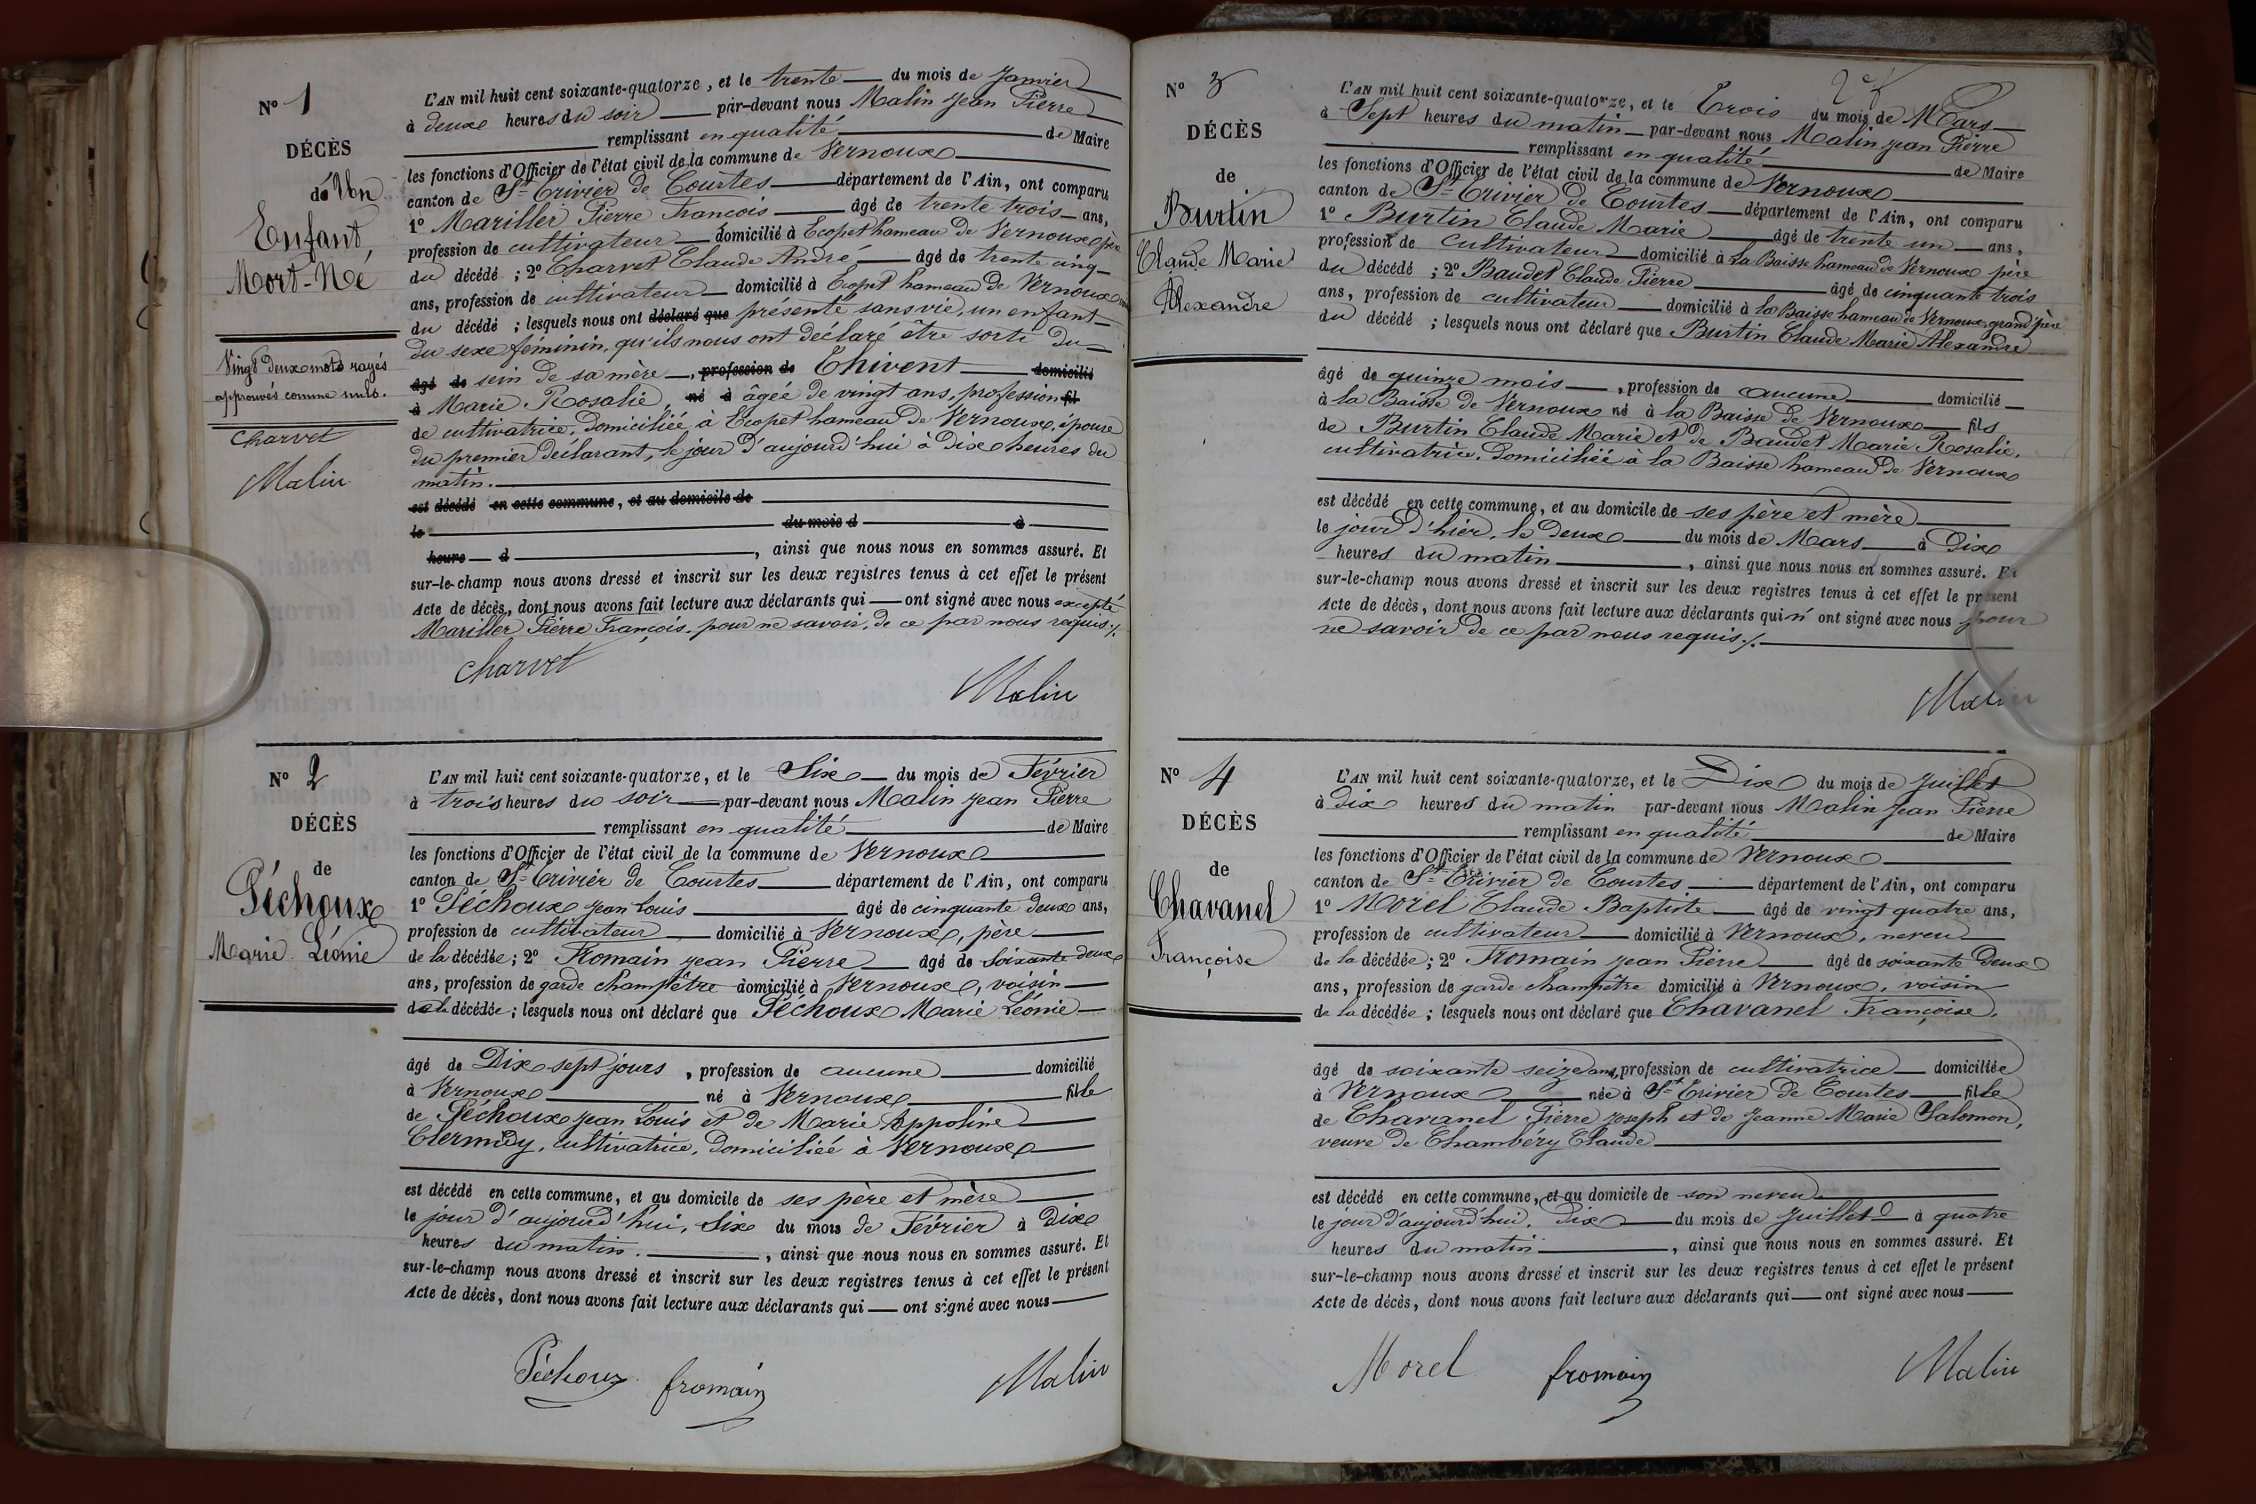 N° 1
DÉCÈS
de Un
Enfant
Mort-Né
Vingt deux mots rayés
approuvés comme nuls.
Charvet
Malin
L'AN mil huit cent soixante-quatorze, et le trente du mois de Janvier
à deux heures du soir par-devant nous Malin Jean Pierre
remplissant en qualité de Maire
les fonctions d'Officier de l'état civil de la commune de Vernoux
canton de St Trivier de Courtes département de l'Ain, ont comparu
1° Mariller Pierre François âgé de trente trois ans,
profession de cultivateur domicilié à Ecopet hameau de Vernoux père
du décédé ; 2° Charvet Claude André âgé de trente cinq
ans, profession de cultivateur domicilié à Ecopet hameau de Vernoux
du décédé ; lesquels nous ont déclaré que présenté sans vie, un enfant
du sexe féminin, qu'ils nous ont déclaré être sorti du
âgé de sein de sa mère, profession de Thivent domicilié
à Marie Rosalie, né à âgée de vingt ans, profession fil
de cultivatrice, domiciliée à Ecopet hameau de Vernoux, épouse
du premier déclarant, le jour d'aujourd'hui à Dix heures du
matin.
est décédé en cette commune, et au domicile de
le du mois d à
heure d , ainsi que nous nous en sommes assuré. Et
sur-le-champ nous avons dressé et inscrit sur les deux registres tenus à cet effet le présent
Acte de décès, dont nous avons fait lecture aux déclarants qui ont signé avec nous excepté
Mariller Pierre François, pour ne savoir, de ce par nous requis ./.
Charvet
Malin
N° 2
DÉCÈS
de
Péchoux
Marie Léonie
L'AN mil huit cent soixante-quatorze, et le Six du mois de Février
à trois heures du soir par-devant nous Malin Jean Pierre
remplissant en qualité de Maire
les fonctions d'Officier de l'état civil de la commune de Vernoux
canton de St Trivier de Courtes département de l'Ain, ont comparu
1° Péchoux Jean Louis âgé de cinquante deux ans,
profession de cultivateur domicilié à Vernoux, père
de la décédée ; 2° Fromain Jean Pierre âgé de soixante deux
ans, profession de garde champêtre domicilié à Vernoux, voisin
de la décédée ; lesquels nous ont déclaré que Péchoux Marie Léonie
âgé de Dix sept jours, profession de aucune domicilié
à Vernoux né à Vernoux fille
de Péchoux Jean Louis et de Marie Appoline
Clermidy, cultivatrice, domiciliée à Vernoux
est décédé en cette commune, et au domicile de ses père et mère
le jour d'aujourd'hui, Six du mois de Février à Dix
heures du matin. , ainsi que nous nous en sommes assuré. Et
sur-le-champ nous avons dressé et inscrit sur les deux registres tenus à cet effet le présent
Acte de décès, dont nous avons fait lecture aux déclarants qui ont signé avec nous
Péchoux fromain Malin
N° 3
DÉCÈS
de
Burtin
Claude Marie
Alexandre
L'AN mil huit cent soixante-quatorze, et le Trois du mois de Mars
à Sept heures du matin par-devant nous Malin Jean Pierre
remplissant en qualité de Maire
les fonctions d'Officier de l'état civil de la commune de Vernoux
canton de St Trivier de Courtes département de l'Ain, ont comparu
1° Burtin Claude Marie âgé de trente un ans,
profession de Cultivateur domicilié à la Baisse hameau de Vernoux père
du décédé ; 2° Baudet Claude Pierre âgé de cinquante trois
ans, profession de cultivateur domicilié à la Baisse hameau de Vernoux, grand'père
du décédé ; lesquels nous ont déclaré que Burtin Claude Marie Alexandre
âgé de quinze mois, profession de aucune domicilié
à la Baisse de Vernoux né à la Baisse de Vernoux fils
de Burtin Claude Marie et de Baudet Marie Rosalie,
cultivatrice, domiciliée à la Baisse hameau de Vernoux
est décédé en cette commune, et au domicile de ses père et mère
le jour d'hier, le deux du mois de Mars à Dix
heures du matin , ainsi que nous nous en sommes assuré. Et
sur-le-champ nous avons dressé et inscrit sur les deux registres tenus à cet effet le présent
Acte de décès, dont nous avons fait lecture aux déclarants qui n'ont signé avec nous pour
ne savoir de ce par nous requis ./.
Malin
N° 4
DÉCÈS
de
Chavanel
Françoise
L'AN mil huit cent soixante-quatorze, et le Dix du mois de Juillet
à dix heures du matin par-devant nous Malin Jean Pierre
remplissant en qualité de Maire
les fonctions d'Officier de l'état civil de la commune de Vernoux
canton de St Trivier de Courtes département de l'Ain, ont comparu
1° Morel Claude Baptiste âgé de vingt quatre ans,
profession de cultivateur domicilié à Vernoux, neveu
de la décédée ; 2° Fromain Jean Pierre âgé de soixante deux
ans, profession de garde champêtre domicilié à Vernoux, voisin
de la décédée ; lesquels nous ont déclaré que Chavanel Françoise,
âgé de soixante seize ans, profession de cultivatrice domiciliée
à Vernoux née à St Trivier de Courtes fille
de Chavanel Pierre Joseph et de Jeanne Marie Salomon,
veuve de Chambéry Claude
est décédé en cette commune, et au domicile de son neveu
le jour d'aujourd'hui, Dix du mois de Juillet à quatre
heures du matin , ainsi que nous nous en sommes assuré. Et
sur-le-champ nous avons dressé et inscrit sur les deux registres tenus à cet effet le présent
Acte de décès, dont nous avons fait lecture aux déclarants qui ont signé avec nous
Morel fromain Malin